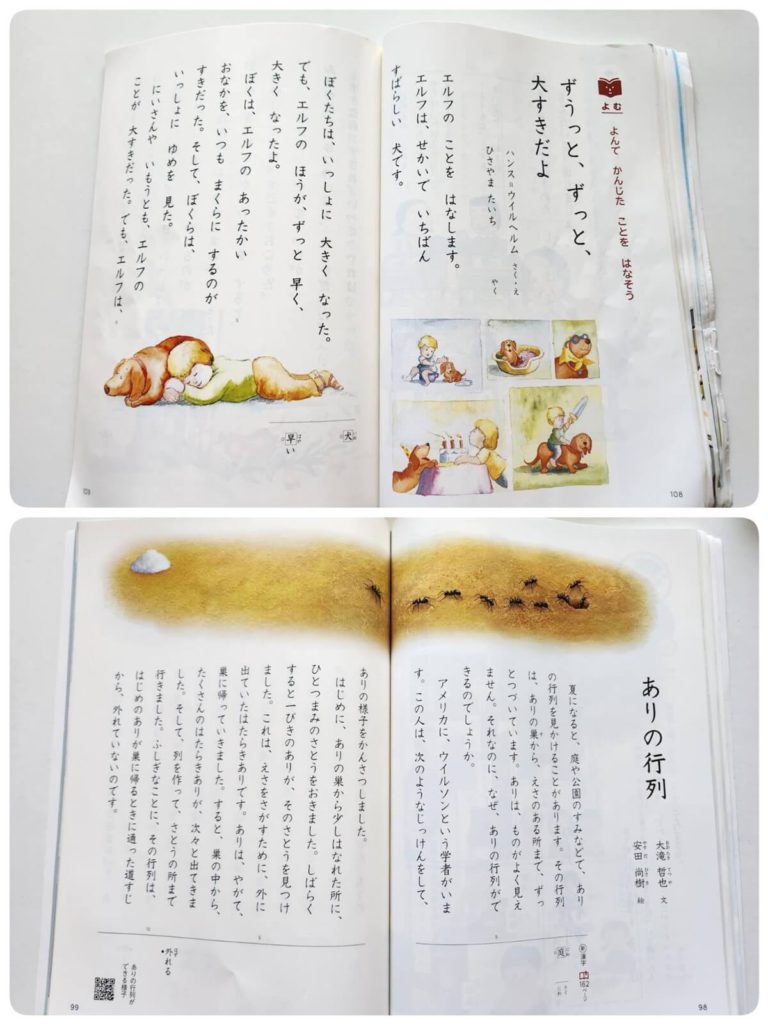 よむ
よんで かんじた ことを はなそう
ずうっと、ずっと、
大すきだよ
ハンス=ウイルヘルム さく・え
ひさやま たいち やく
エルフの ことを はなします。
エルフは、せかいで いちばん
すばらしい 犬です。
108
ぼくたちは、いっしょに 大きく なった。
でも、エルフの ほうが、ずっと 早く、
大きく なったよ。
ぼくは、エルフの あったかい
おなかを、いつも まくらに するのが
すきだった。そして、ぼくらは、
いっしょに ゆめを 見た。
にいさんや いもうとも、エルフの
ことが 大すきだった。でも、エルフは、
犬
早い
109
ありの行列
大滝 哲也 文
安田 尚樹 絵
夏になると、庭や公園のすみなどで、あり
の行列を見かけることがあります。その行列
は、ありの巣から、えさのある所まで、ずっ
とつづいています。ありは、ものがよく見え
ません。それなのに、なぜ、ありの行列がで
きるのでしょうか。
アメリカに、ウイルソンという学者がいま
す。この人は、次のようなじっけんをして、
庭
162ページ
98
ありの様子をかんさつしました。
はじめに、ありの巣から少しはなれた所に、
ひとつまみのさとうをおきました。しばらく
すると一ぴきのありが、そのさとうを見つけ
ました。これは、えさをさがすために、外に
出ていたはたらきありです。ありは、やがて、
巣に帰っていきました。すると、巣の中から、
たくさんのはたらきありが、次々と出てきま
した。そして、列を作って、さとうの所まで
行きました。ふしぎなことに、その行列は、
はじめのありが巣に帰るときに通った道すじ
から、外れていないのです。
外れる
ありの行列が
できる様子
99